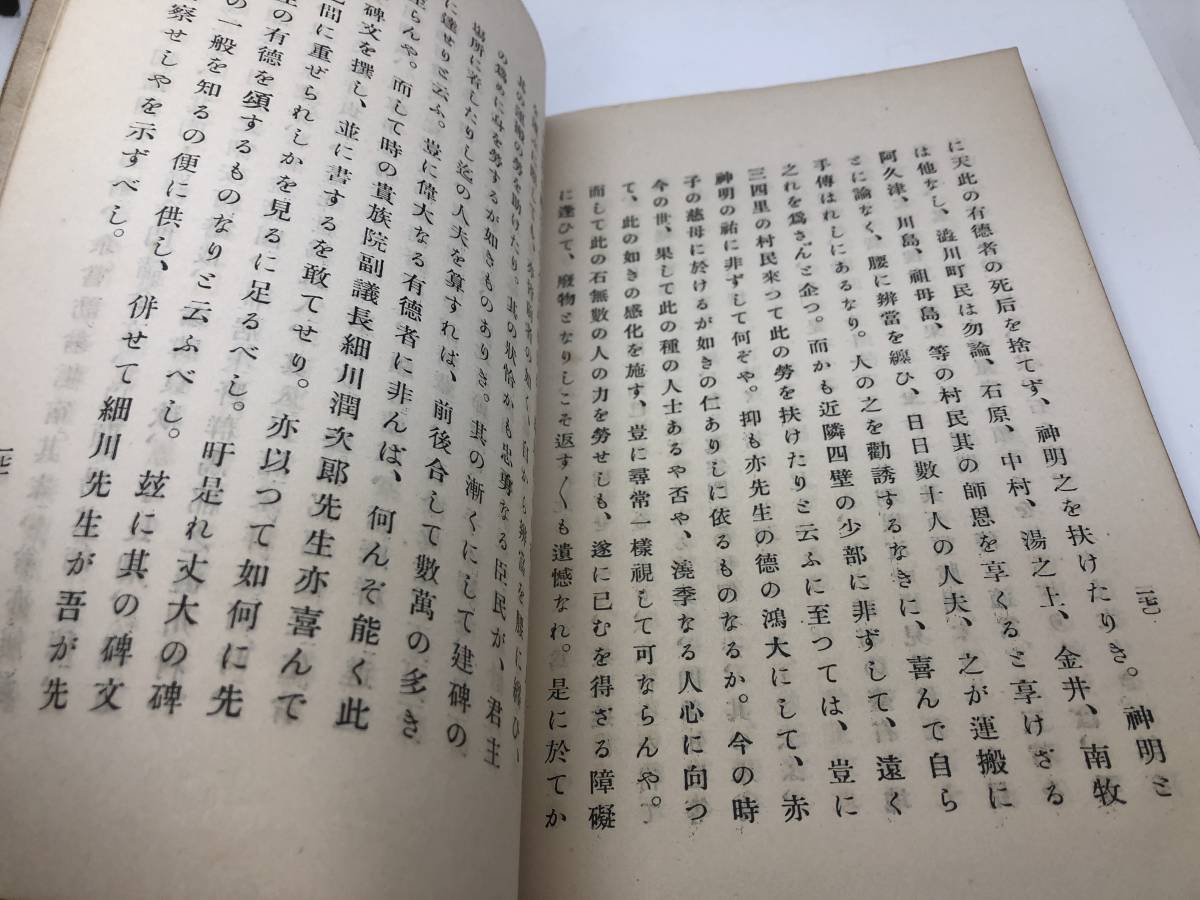 に天此の有德者の死后を捨てず、神明之を扶けたりき。神明と
は他なし、澁川町民は勿論、石原、中村、湯之上、金井、南牧
阿久津、川島、祖母島、等の村民其の師恩を享くると享けざる
とに論なく、腰に辨當を纒ひ、日日數十人の人夫、之が運搬に
手傳はれしにあるなり。人の之を勸誘するなきに、喜んで自ら
之れを爲さんと企つ。而かも近隣四壁の少部に非ずして、遠く
三四里の村民來つて此の勞を扶けたりと云ふに至つては、豈に
神明の祐に非ずして何ぞや。抑も亦先生の德の鴻大にして、赤
子の慈母に於けるが如きの仁ありしに依るものなるか。今の時
今の世、果して此の種の人士あるや否や、澆季なる人心に向つ
て、此の如きの感化を施す、豈に尋常一樣視して可ならんや。
而して此の石無數の人の力を勞せしも、遂に已むを得ざる障礙
に逢ひて、廢物となりしこそ返す〱も遺憾なれ。是に於てか
其の運搬の勞を助けたり。其の狀恰かも忠勇なる臣民が、君主
の爲めに身を勞するが如きものありき。其の漸くにして建碑の
場所に着したりし迄の人夫を算すれば、前後合して數萬の多き
に達せりと云ふ。豈に偉大なる有德者に非んば、何んぞ能く此
らんや。而して時の貴族院副議長細川潤次郎先生亦喜んで
碑文を撰し、並に書するを敢てせり。亦以つて如何に先
間に重ぜられしかを見るに足るべし。旴是れ丈大の碑
の有德を頌するものなりと云ふべし。玆に其の碑文
の一般を知るの便に供し、併せて細川先生が吾が先
察せしやを示ずべし。